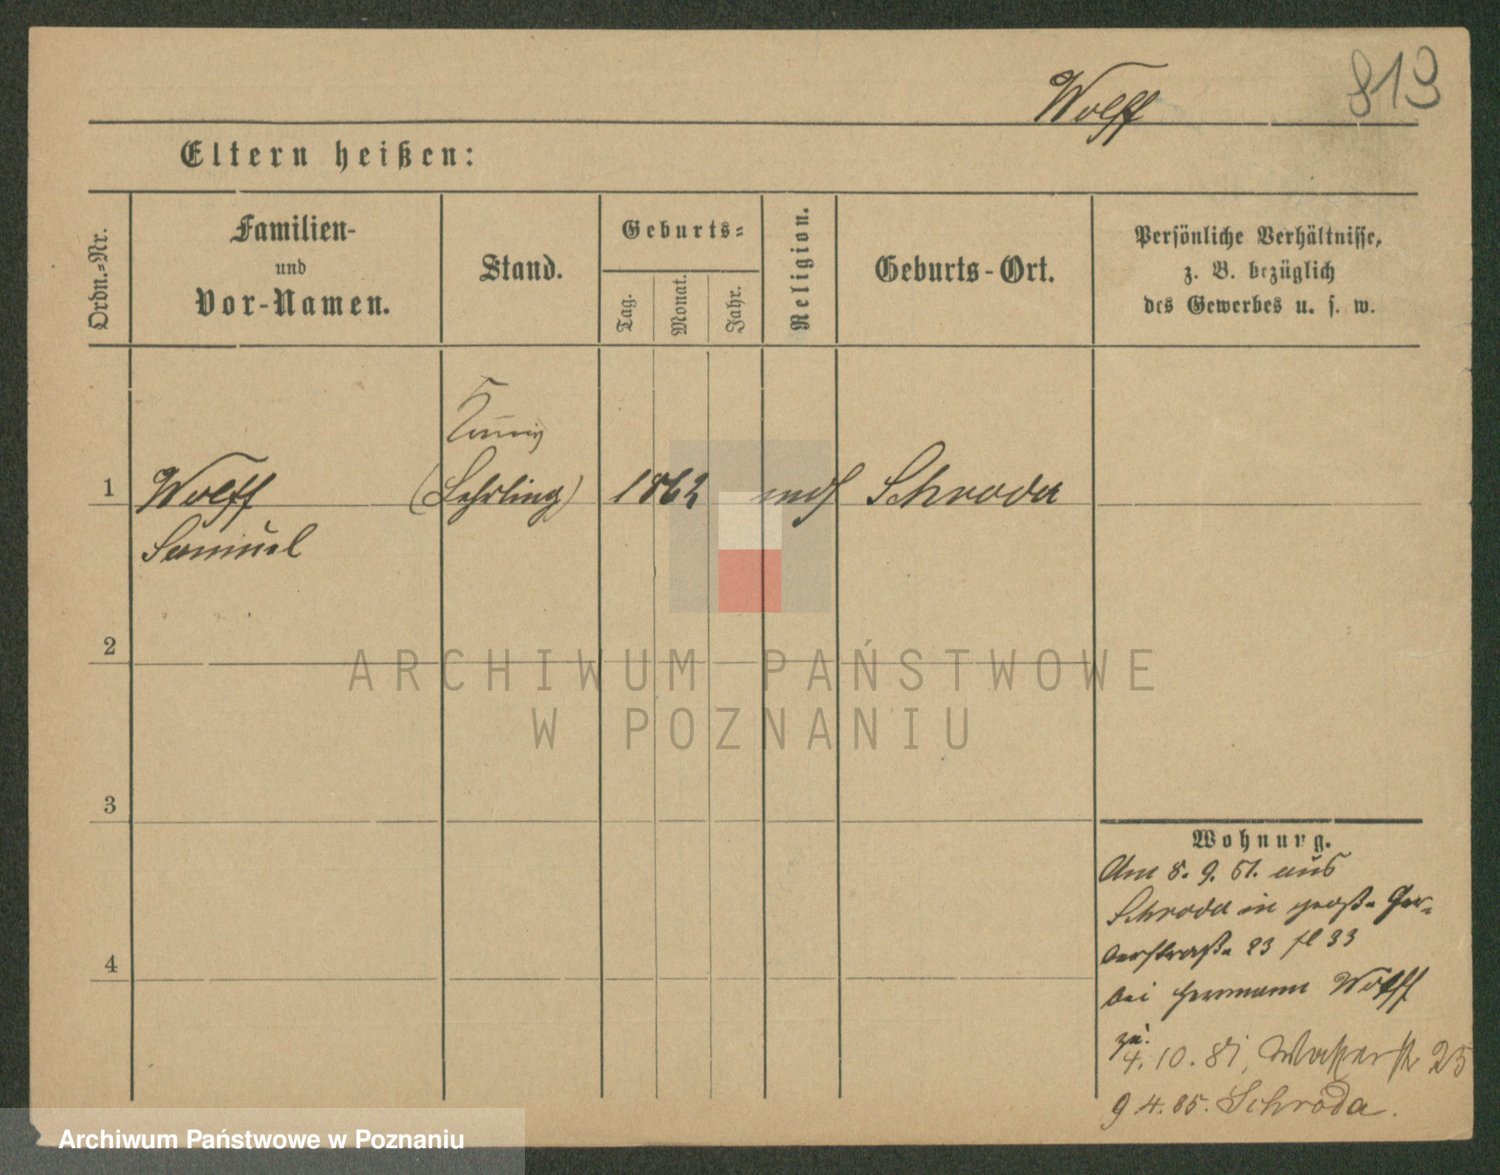 813
Wolff
Eltern heißen:
Ordn.-Nr.
Familien-
und
Vor-Namen.
Stand.
Geburts-
Tag.
Monat.
Jahr.
Religion.
Geburts-Ort.
Persönliche Verhältnisse,
z. B. bezüglich
des Gewerbes u. s. w.
1
Wolff
Samuel
(Lehrling)
1862
mos
Schroda
2
ARCHIWUM PAŃSTWOWE
W POZNANIU
3
Wohnung.
Am 8. 9. 81. aus
Schroda in große Ger-
berstraße 23
bei Hermann Wolff
zu.
4
4. 10. 81, Wasserstr 25
9 4. 85. Schroda.
Archiwum Państwowe w Poznaniu